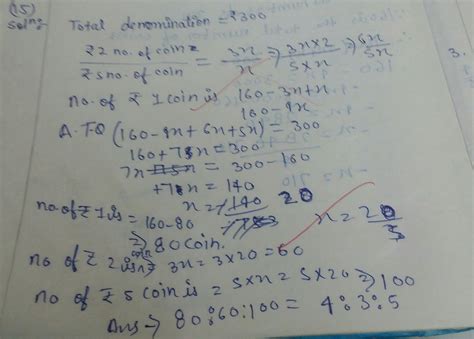 (15)
Soln:- Total denomination = ₹300
₹2 no. of coin / ₹5 no. of coin = 3x/x ⇒ 3x×2/5×x ⇒ 6x/5x
no. of ₹ 1 coin is 160-3x+x
160-4x
A.T.Q (160-4x+6x+5x) = 300
160+7x = 300
7x = 300-160
+7x = 140
x = 140 20
no. of ₹1 is = 160-80
x = 20
⇒ 80 coin.
no of ₹ 2 coin is 3x = 3×20 = 60
no of ₹ 5 coin is = 5×x = 5×20 ⇒ 100
Ans → 80:60:100 = 4:3:5